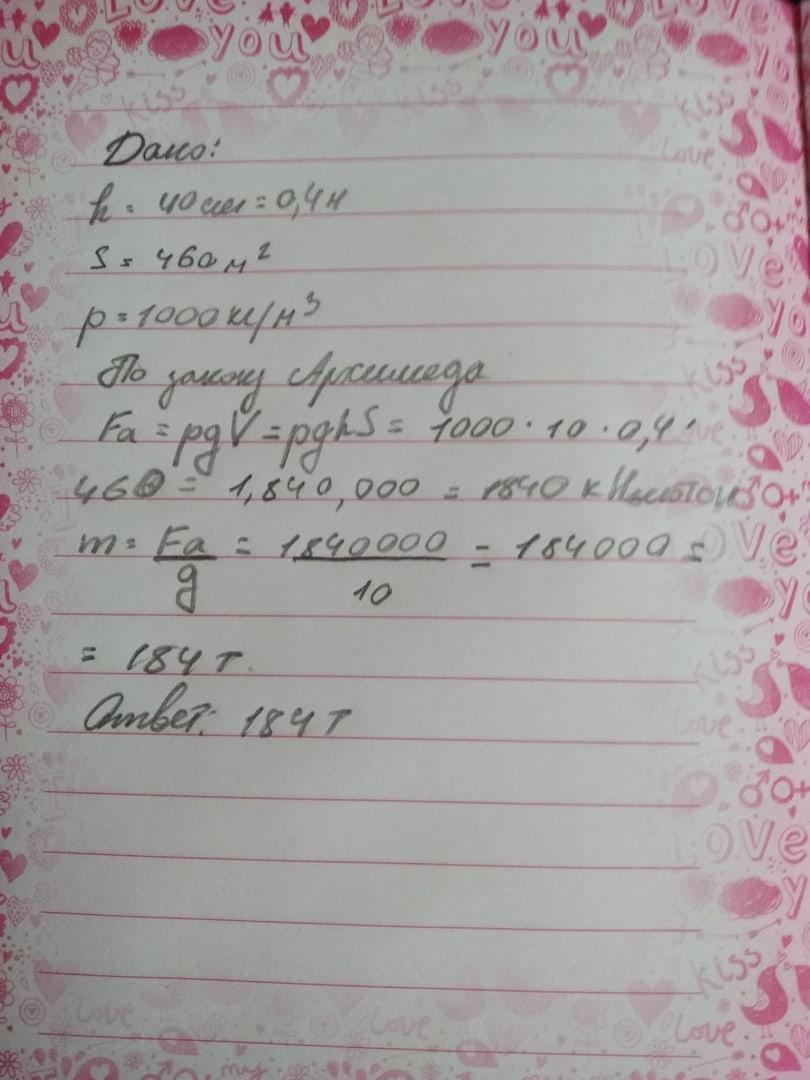 LOVE
you
you
Kiss
Kiss
Дано:
h = 40 см = 0,4 м
S = 460 м²
p = 1000 кг/м³
По закону Архимеда
Fa = pgV = pghS = 1000 · 10 · 0,4 ·
460 = 1,840,000 = 1840 кНьютон
m = Fa/g = 1840000/10 = 184000 =
= 184 т.
Ответ: 184 т
Love
LOVE
Kiss
LOVE
Kiss
Love
Love
Love
my